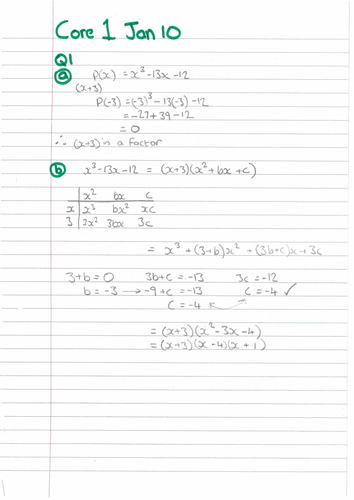 Core 1 Jan 10
Q1
(a) P(x) = x³-13x-12
(x+3)
P(-3) = (-3)³-13(-3)-12
= -27+39-12
= 0
∴ (x+3) is a factor
(b) x³-13x-12 = (x+3)(x²+bx+c)
x² bx c
x x³ bx² xc
3 3x² 3bx 3c
= x³+(3+b)x²+(3b+c)x+3c
3+b=0 3b+c=-13 3c=-12
b=-3 → -9+c=-13 c=-4 ✓
c=-4
= (x+3)(x²-3x-4)
= (x+3)(x-4)(x+1)